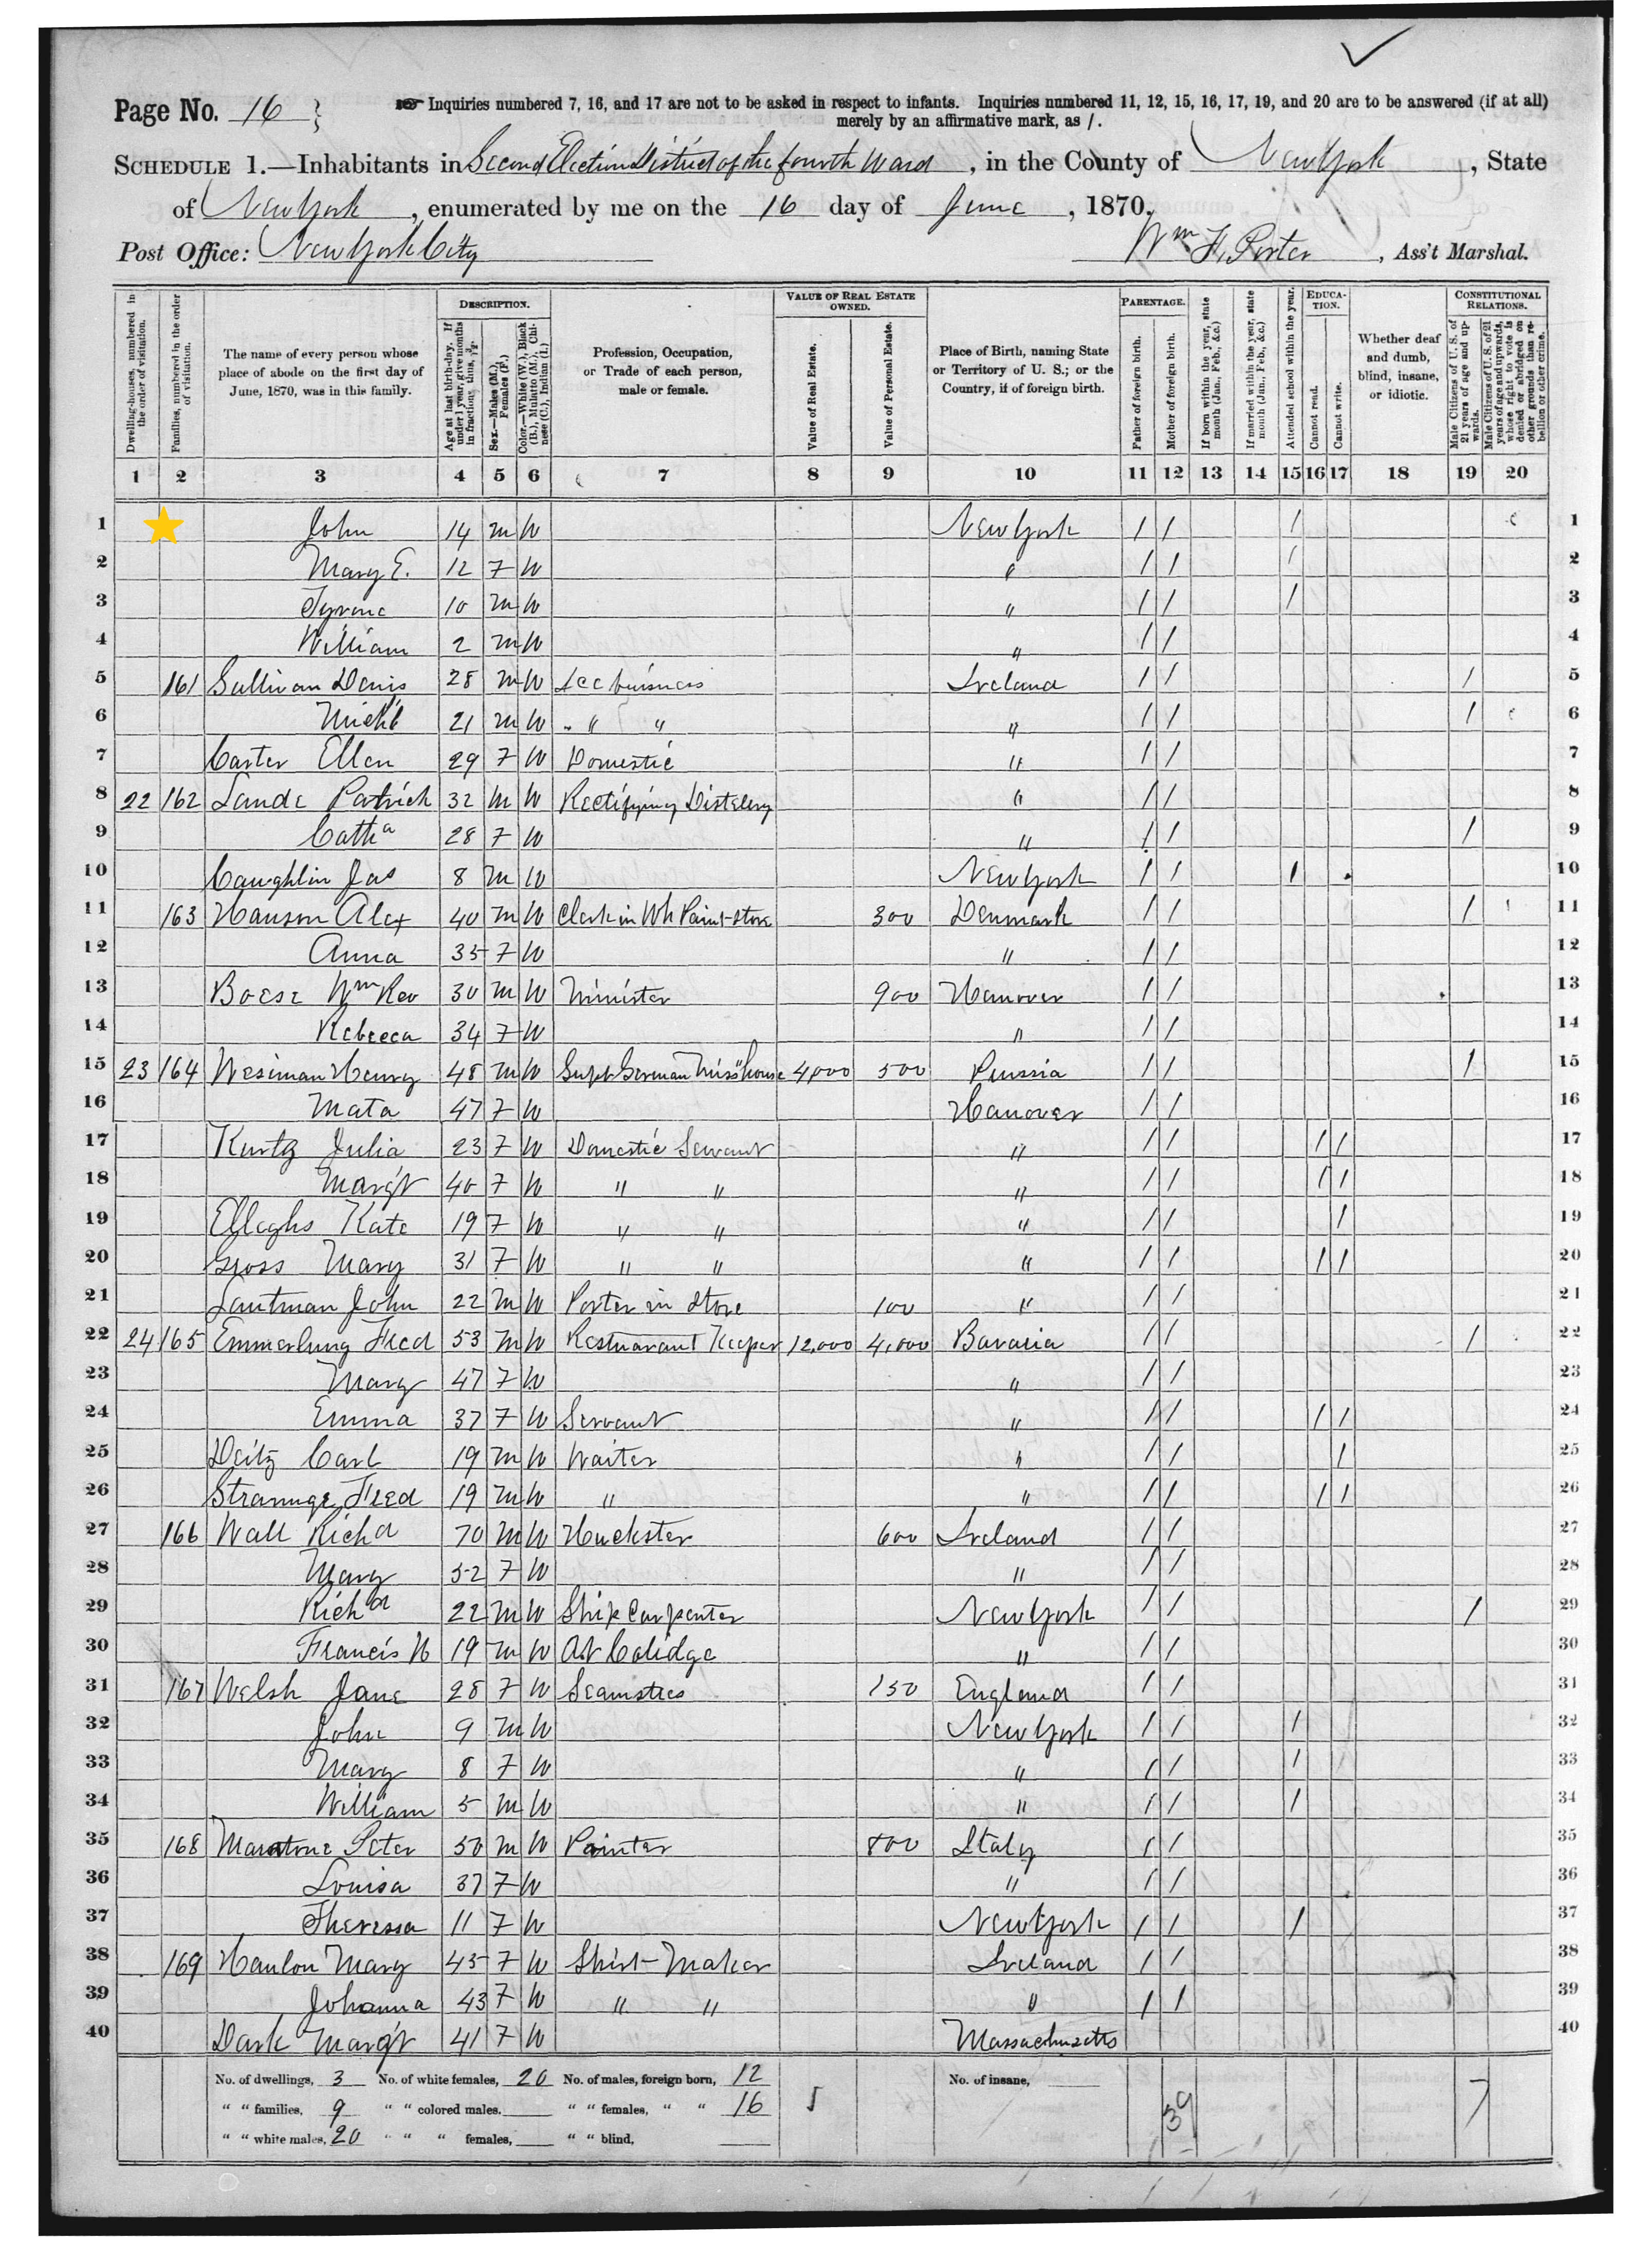 Page No. 16 }
☞ Inquiries numbered 7, 16, and 17 are not to be asked in respect to infants. Inquiries numbered 11, 12, 15, 16, 17, 19, and 20 are to be answered (if at all)
merely by an affirmative mark, as /.
SCHEDULE 1.—Inhabitants in Second Election District of the fourth Ward, in the County of New York, State
of New York, enumerated by me on the 16 day of June, 1870.
Post Office: New York City Wm H, Porter, Ass't Marshal.
DESCRIPTION. VALUE OF REAL ESTATE OWNED. PARENTAGE. EDUCATION. CONSTITUTIONAL RELATIONS.
Dwelling-houses, numbered in the order of visitation.
Families, numbered in the order of visitation.
The name of every person whose place of abode on the first day of June, 1870, was in this family.
Age at last birth-day. If under 1 year, give months in fractions, thus, 3/12.
Sex.—Males (M.), Females (F.)
Color.—White (W.), Black (B.), Mulatto (M.), Chinese (C.), Indian (I.)
Profession, Occupation, or Trade of each person, male or female.
Value of Real Estate.
Value of Personal Estate.
Place of Birth, naming State or Territory of U. S.; or the Country, if of foreign birth.
Father of foreign birth.
Mother of foreign birth.
If born within the year, state month (Jan., Feb., &c.)
If married within the year, state month (Jan., Feb., &c.)
Attended school within the year.
Cannot read.
Cannot write.
Whether deaf and dumb, blind, insane, or idiotic.
Male Citizens of U. S. of 21 years of age and upwards.
Male Citizens of U. S. of 21 years of age and upwards, whose right to vote is denied or abridged on other grounds than rebellion or other crime.
1 2 3 4 5 6 7 8 9 10 11 12 13 14 15 16 17 18 19 20
1 John 14 m W New York / / / 1
2 Mary E. 12 F W " / / / 2
3 Tyrone 10 m W " / / / 3
4 William 2 m W " / / 4
5 161 Sullivan Denis 28 m W Ice buisness Ireland / / / 5
6 Michl 21 m W " " " " / / / 6
7 Carter Ellen 29 F W Domestic " / / 7
8 22 162 Lande Patrick 32 m W Rectifying Distelery " / / 8
9 Catha 28 F W " / / / 9
10 Caughlin Jas 8 m W New York / / / 10
11 163 Hanson Alex 40 m W Clerk in Wh Paint-store 300 Denmark / / / 11
12 Anna 35 F W " / / 12
13 Boese Wm Rev 30 m W Minister 900 Hanover / / 13
14 Rebecca 34 F W " / / 14
15 23 164 Wesiman Henry 48 m W Supt German Miss"house 4,000 500 Prussia / / / 15
16 Mata 47 F W Hanover / / 16
17 Kurtz Julia 23 F W Domestic Servant " / / / / 17
18 Margt 40 F W " " " / / / / 18
19 Elleghs Kate 19 F W " " " / / / 19
20 Gross Mary 31 F W " " " / / / / 20
21 Lautman John 22 m W Porter in Store 100 " / / 21
22 24 165 Emmerlung Fred 53 m W Restuarant Keeper 12,000 4,000 Bavaria / / / 22
23 Mary 47 F W " / / 23
24 Emma 37 F W Servant " / / / / 24
25 Deitz Carl 19 m W Waiter " / / / 25
26 Stramuge Fred 19 m W " " / / / / 26
27 166 Wall Richd 70 m W Huckster 600 Ireland / / 27
28 Mary 52 F W " / / 28
29 Richd 22 m W Ship Carpenter New York / / / 29
30 Francis W 19 m W At Colidge " / / 30
31 167 Welsh Jane 28 F W Seamstres 150 England / / 31
32 John 9 m W New York / / / 32
33 Mary 8 F W " / / / 33
34 William 5 m W " / / / 34
35 168 Peter 50 m W Painter 800 Italy / / 35
36 Louisa 37 F W " / / 36
37 Theressa 11 F W New York / / / 37
38 169 Hanlon Mary 45 F W Shirt-Maker Ireland / / 38
39 Johanna 43 F W " " " / / 39
40 Dark Margt 41 F W Massachusetts 40
No. of dwellings, 3 No. of white females, 20 No. of males, foreign born, 12 No. of insane,
" " families, 9 " " colored males, " " females, " " 16 5 39 7
" " white males, 20 " " " females, " " blind,